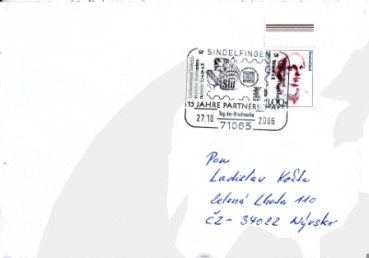 SINDELFINGEN
15 JAHRE PARTNERSCHAFT
Tag der Briefmarke
27.10. 2006
71065
Pan
Ladislav Košta
Zelená Lhota 110
ČZ - 34022 Nýrsko